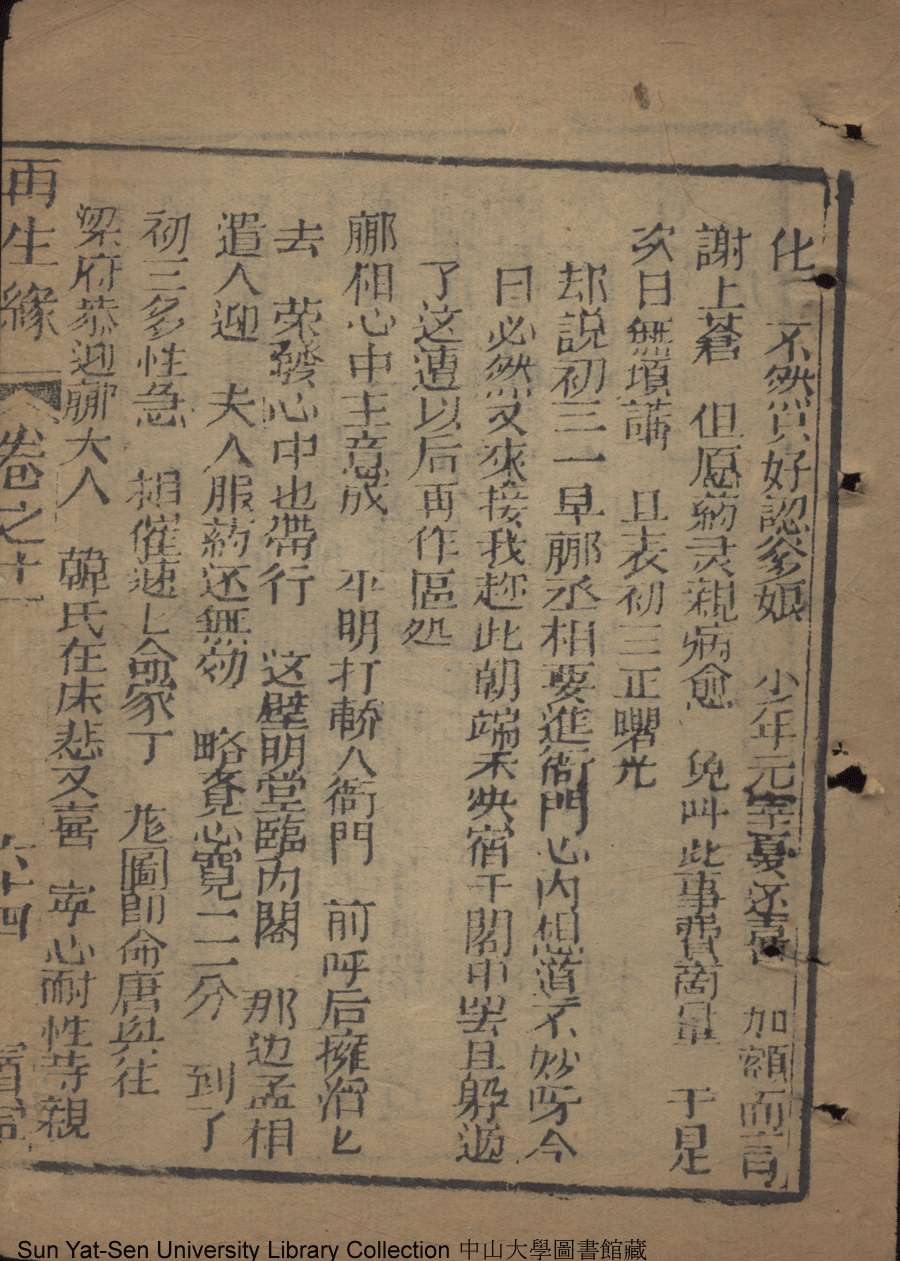 化 不然只好認爹娘 少年元宰憂还喜 加額而言
謝上蒼 但愿葯灵親病愈 免叫此事費商量 于是
次日無項講 且表初三正曙光
却説初三一早郦丞相要進衙門心内想道不妙呀今
日必然又來接我趂此朝端未央宿于閣中罢且躱過
了这遭以后再作區処
郦相心中主意成 平明打轎入衙門 前呼后擁滔匕
去 荣發心中也帶行 这壁明堂臨内閣 那边孟相
遣人迎 夫人服葯还無効 略覚心寛一二分 到了
初三多性急 相催速匕命家丁 龙圖即命唐興往
梁府恭迎郦大人 韓氏在床悲又喜 寧心耐性等親
再生緣 卷之十一 六十四
Sun Yat-Sen University Library Collection 中山大學圖書館藏